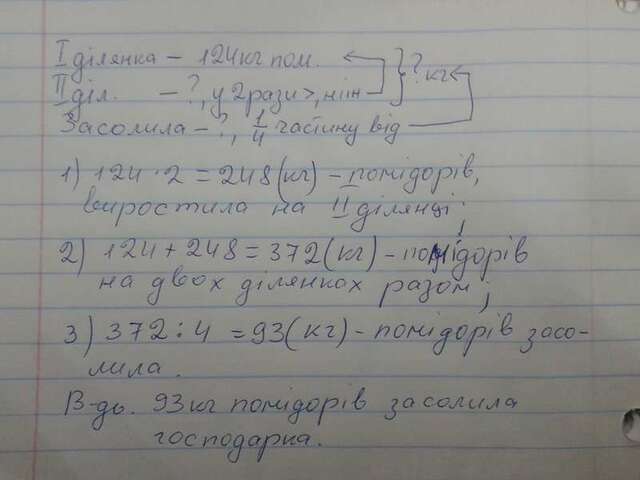 I ділянка – 124кг пом.
II діл. – ?, у 2рази >, ніж } ? кг
Засолила – ?, 1/4 частину від
1) 124 · 2 = 248 (кг) – помідорів,
виростила на II ділянці;
2) 124 + 248 = 372 (кг) – помідорів
на двох ділянках разом;
3) 372 : 4 = 93 (кг) – помідорів засо-
лила.
В-дь. 93кг помідорів засолила
господарка.